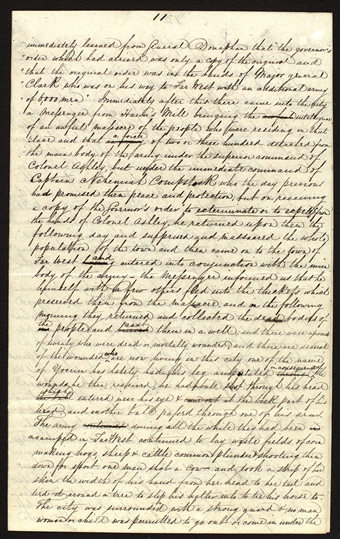 11
immediately learned from General Doniphan that the governor's
order which he had received was only a copy of the original and
that the original order was in the hands of Major general
Clark who was on his way to Far West with an additional army
of 6000 men Immediately after this there came into the city
a messenger from Hauns Mill bringing the intelligence
of an awful massacre of the people who were residing in that
place and that a force of two or three hundred detached from
the main body of the army under the superior command of
Colonel Ashley, but under the immediate command of
Captain Nehemiah Compstock who the day previous
had promised them peace and protection, but on receiving
a copy of the Governor's order to exterminate or to expel from
the hands of Colonel Ashley, he returned upon them the
following day and surprised and massacred the whole
population of the town and then came on to the town of
Far West and entered into conjunction with the main
body of the army. The messenger informed us that he
himself with a few others fled into the thickets which
preserved them from the massacre and on the following
morning they returned and collected the dead bodies of
the people and them in a well. and there were upwards
of twenty who were dead or mortally wounded and there are several
of the wounded who are now living in this city one of the name
of Yocum has lately had his leg amputated in consequence of
wounds he then received. he had a ball shot through his head
entered near his eye & at the back part of his
head and another ball passed through one of his arms
The army during all the while they had been
encamped in Far West continued to lay waste fields of corn
making hogs, sheep & cattle common plunder, shooting them
down for sport. one man shot a cow and took a strip of her
skin the width of his hand from her head to her tail and
tied it around a tree to slip his halter into to tie his horse to
The city was surrounded with a strong guard & no man
woman or child was permitted to go out or come in under the